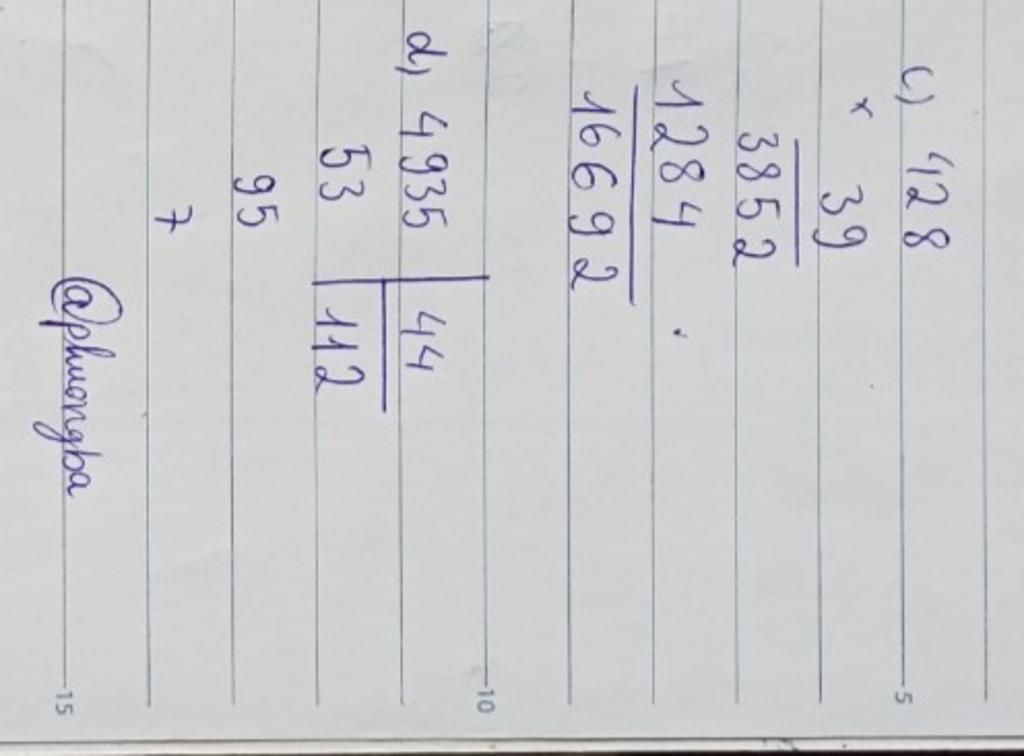 c) 428
× 39
3852
1284
16692
d) 4935 44
53 112
95
7
@phuongba
5
10
15